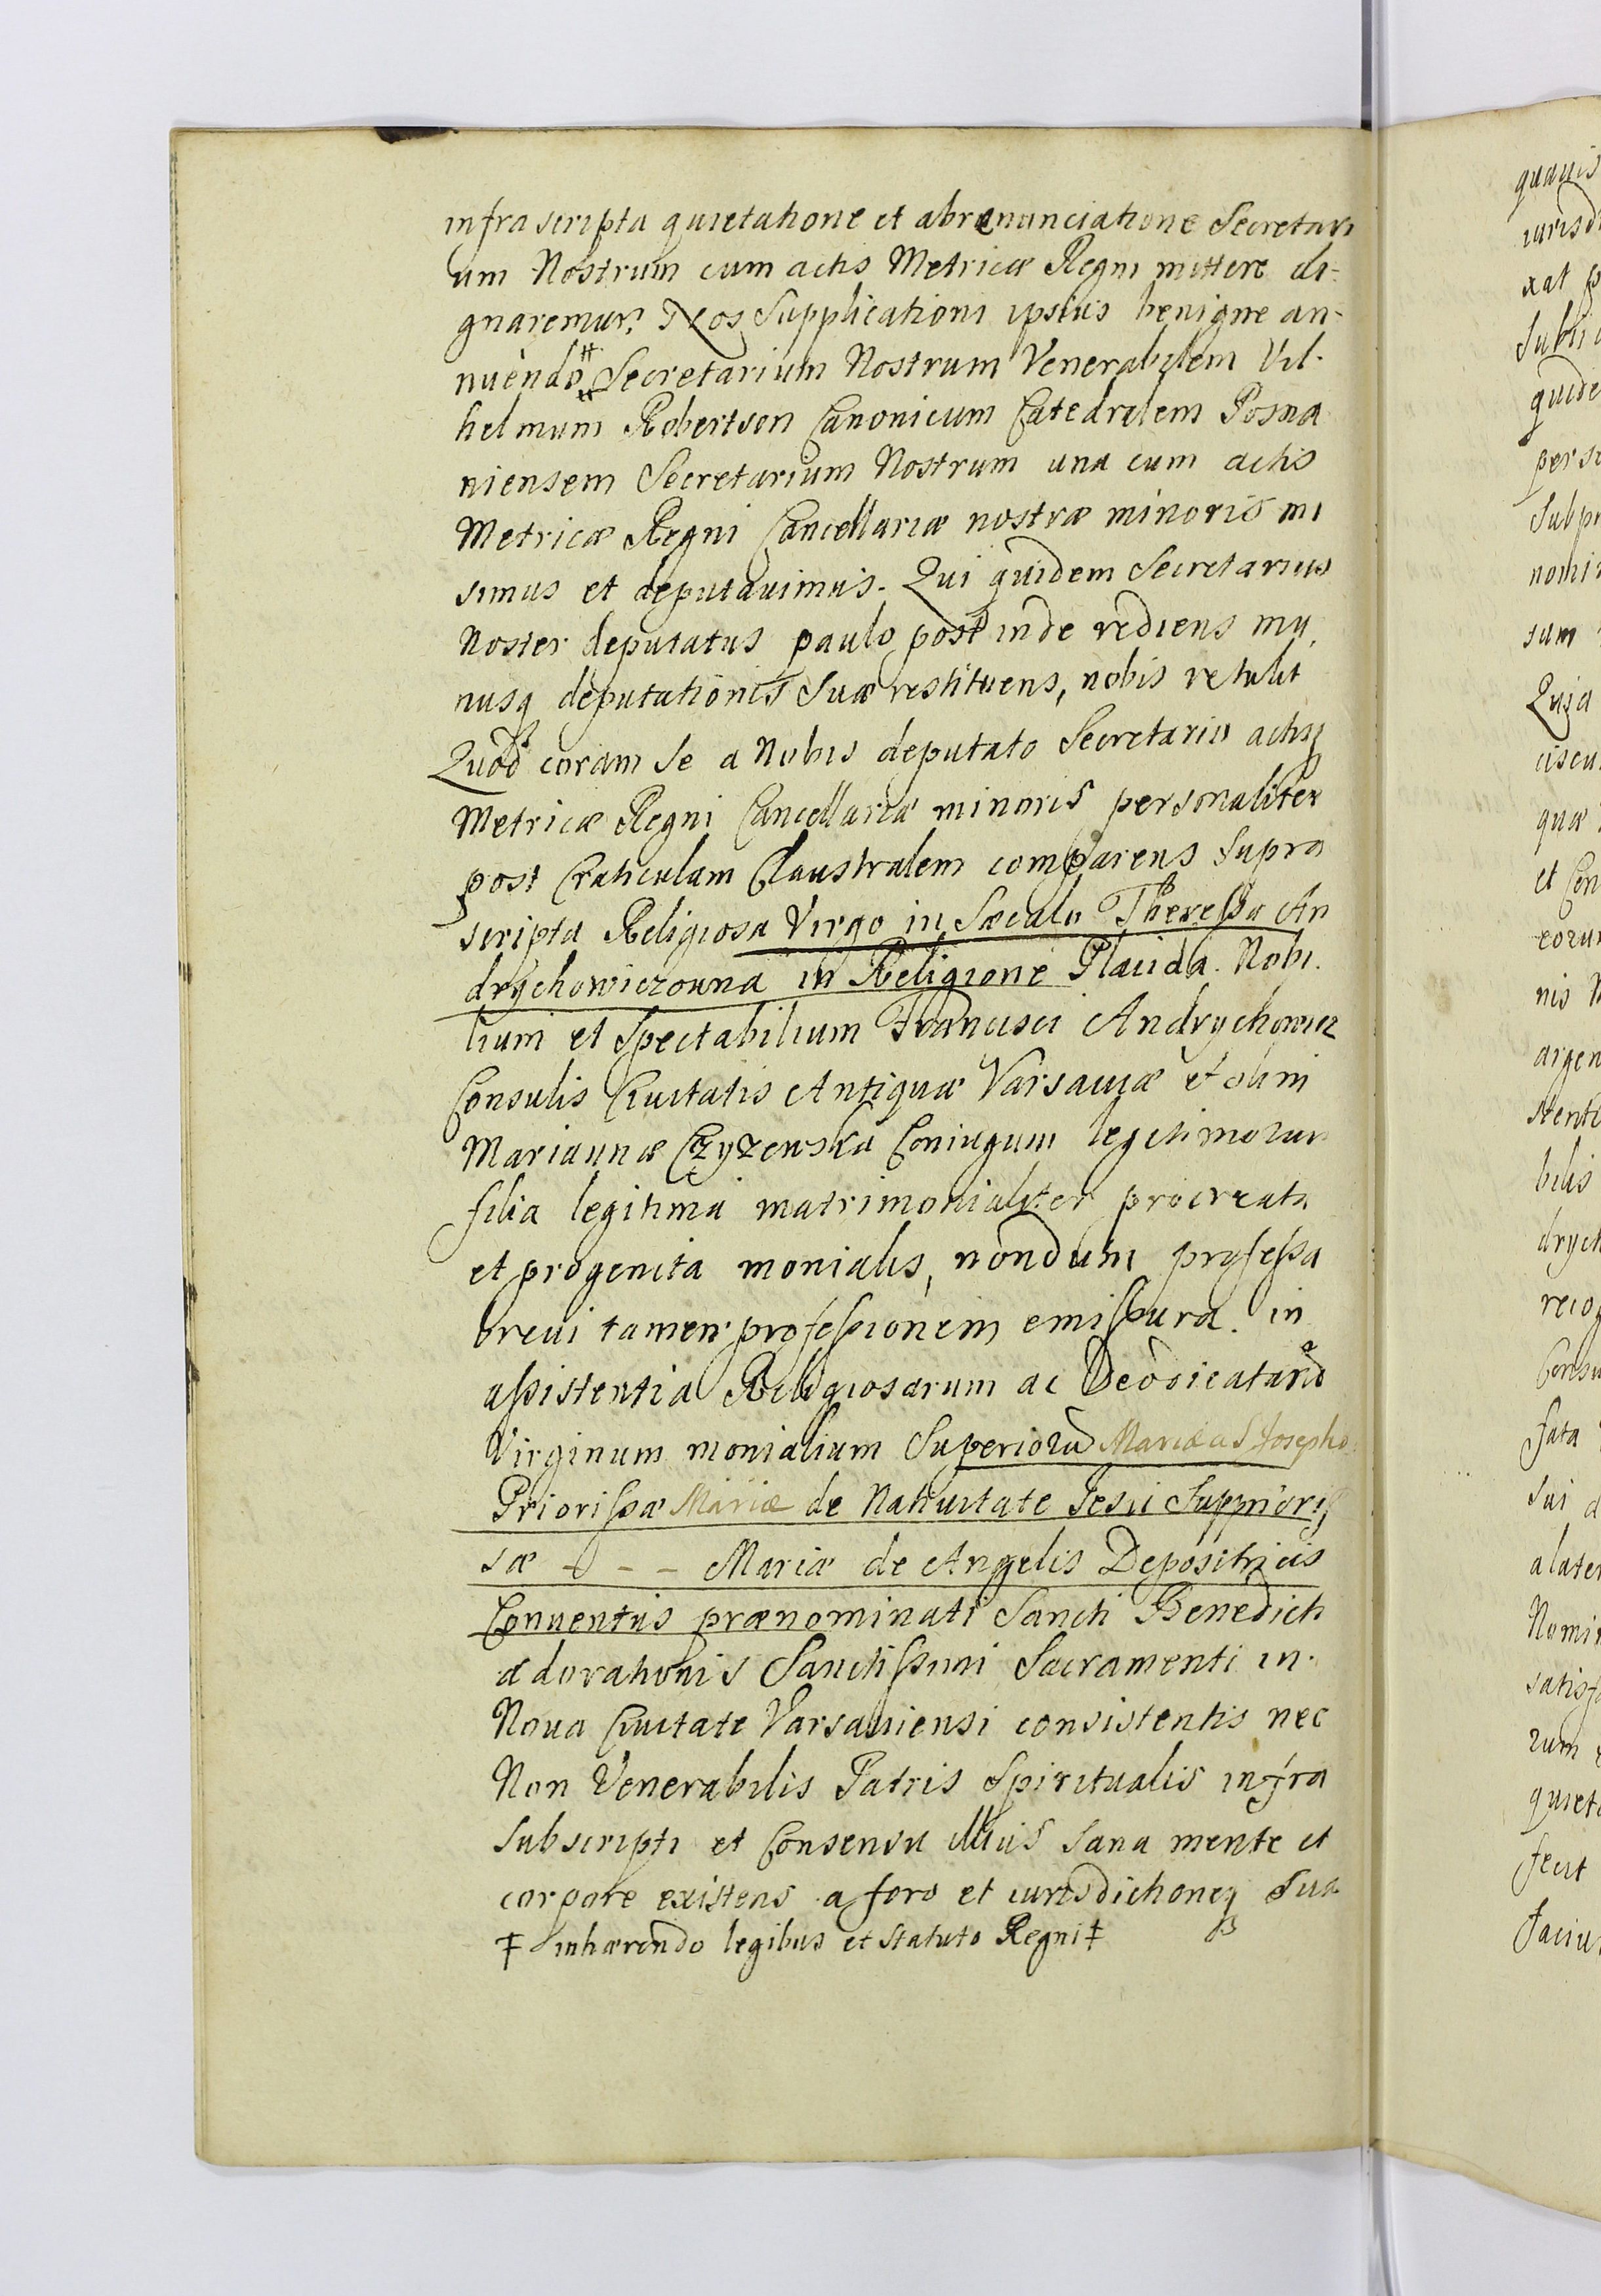 infra scripta quietatione et abrenunciatione Secretari
um Nostrum cum actis Metricæ Regni mittere di-
gnaremur. Nos Supplicationi ipsius benigne an-
nuendo ‡ Secretarium Nostrum Venerabilem Vil-
helmum Robertson Canonicum Catedralem Posna
niensem Secretarium Nostrum una cum actis
Metricæ Regni Cancellariæ nostræ minoris mi
simus et deputauimus. Qui quidem Secretarius
Noster deputatus paulo post inde rediens mu
nusq deputationis Suæ restituens, nobis retulit
Quod coram Se a Nobis deputato Secretario actisq
Metricæ Regni Cancellariæ minoris personaliter
post Craticulam Claustralem comparens Supra
scripta Religiosa Virgo in Sæculo Theressa An
drychowiczouna in Religione Placida. Nobi.
lium et Spectabilium Francisci Andrychowicz
Consulis Ciuitatis Antiquæ Varsauiæ et olim
Mariannæ Czyzewska Coniugum legitimorum
filia legitima matrimonialiter procreata
et progenita monialis, nondum professa
breui tamen professionem emissura. in
assistentia Religiosarum ac Deo dicatarũ
Virginum monialium Superiorũ Mariæ a S Josepho
Priorissæ Mariæ de Natiuitate Jesu Supprioris
sæ - - - Mariæ de Angelis Depositricis
Conuentus prænominati Sancti Benedicti
adorationis Sanctissimi Sacramenti in
Noua Ciuitate Varsauiensi consistentis nec
Non Venerabilis Patris Spiritualis infra
Subscripti et Consensu illius Sana mente et
corpore existens a foro et iurisdictioneq Sua
‡ inhærendo legibus et Statuto Regni ‡
quauis
iurisdi
xat
guide
Subpr
sum
Quia
quæ
et Con
eorum
nis
argen
stente
bilis
drych
recog
Consu
fata
Sui
alater
Nomin
satisfa
rum
quiet
fecit